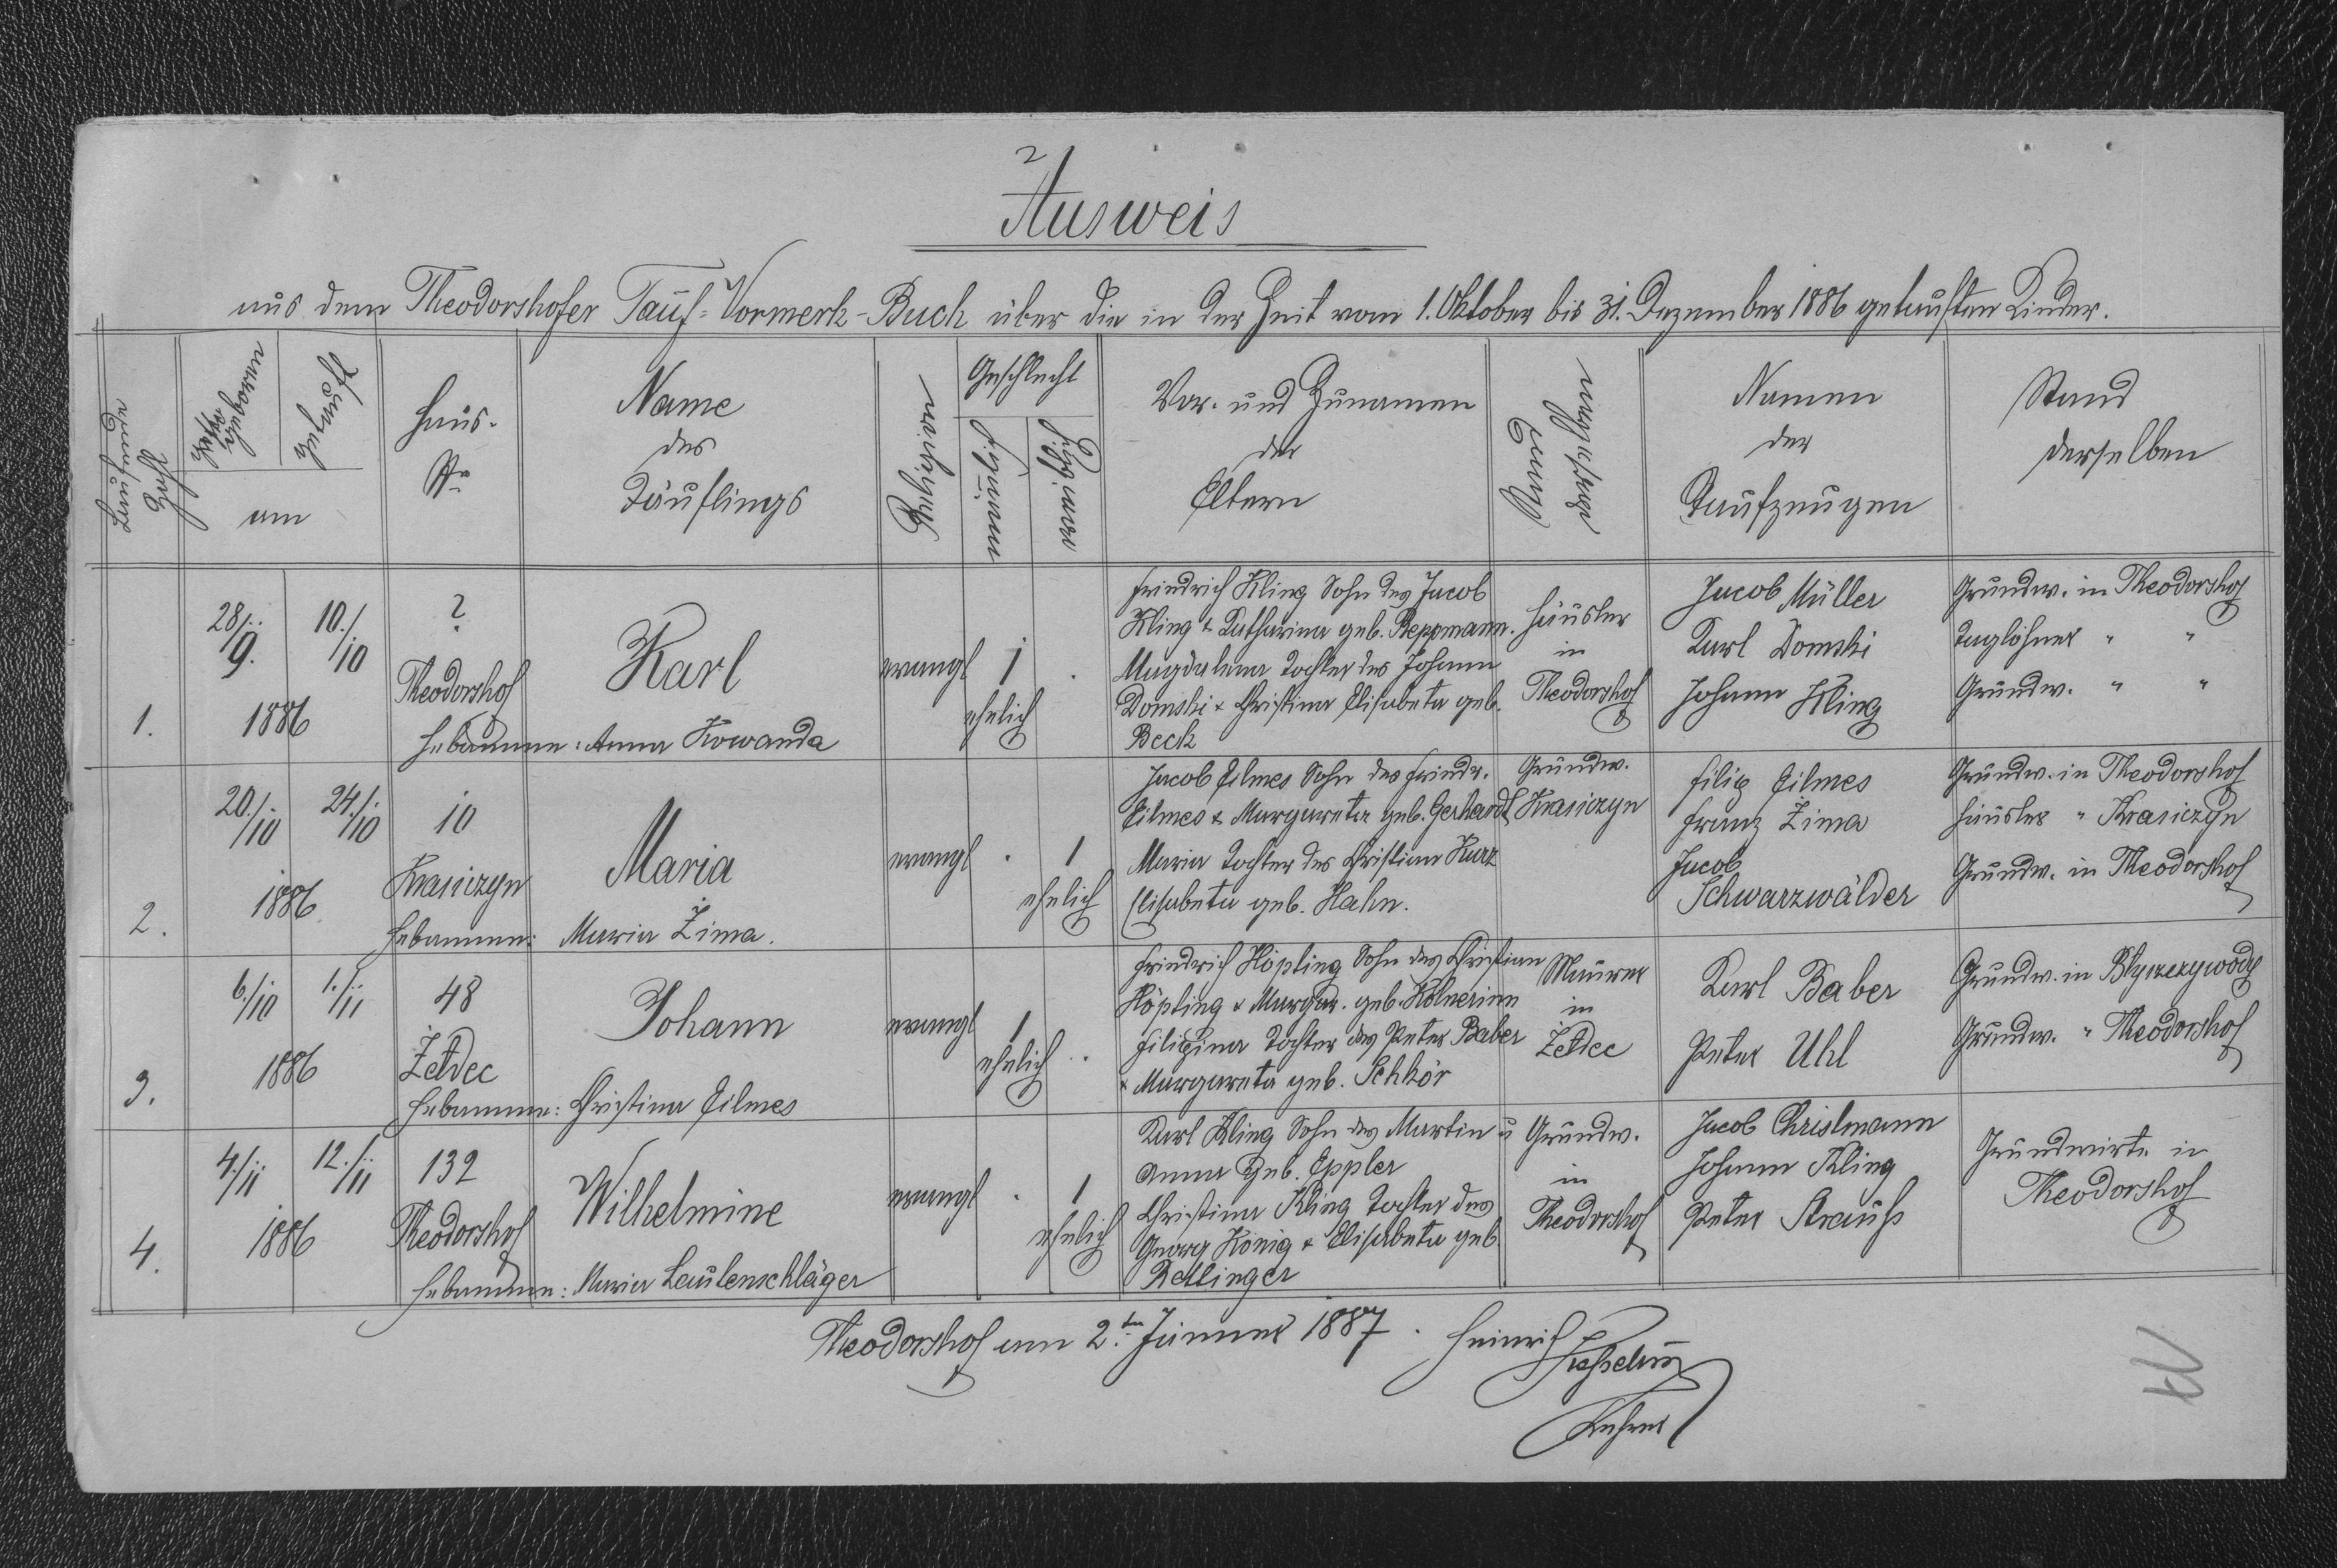 2
Ausweis
aus dem Theodorshofer Tauf-Vormerk-Buch über die in der Zeit vom 1. Oktober bis 31. Dezember 1886 getauften Kinder.
Laufende Zahl
geboren
getauft
am
Haus-
Nr.
Name
des
Täuflings
Religion
Geschlecht
männlich
weiblich
Vor- und Zunamen
der
Eltern
Stand
derselben
Namen
der
Taufzeugen
Stand
derselben
1.
28./9.
10./10
1886
?
Theodorshof
Karl
Hebamme: Anna Kowanda
evangl
1
ehelich
.
Friedrich Kling Sohn des Jacob
Kling & Katharina geb. Reppmann.
Magdalena Tochter des Johann
Domski & Christina Elisabeta geb.
Beck
Häusler
in
Theodorshof
Jacob Müller
Karl Domski
Johann Kling
Grundw. in Theodorshof
Taglöhner " "
Grundw. " "
2.
20./10
24./10
1886
10
Krasiczyn
Maria
Hebamme: Maria Zima.
evangl
.
1
ehelich
Jacob Eilmes Sohn des Friedr.
Eilmes & Margareta geb. Gerhardt
Maria Tochter des Christian Kurz
Elisabeta geb. Hahn.
Grundw.
Krasiczyn
Filip Eilmes
Franz Zima
Jacob
Schwarzwälder
Grundw. in Theodorshof
Häusler " Krasiczyn
Grundw. in Theodorshof
3.
6./10
1./11
1886
48
Żełdec
Johann
Hebamme: Christina Eilmes
evangl
1
ehelich
.
Friedrich Höpling Sohn des Christian
Höpling & Margar. geb. Kölnerinn
Filipina Tochter des Peter Baber
& Margareta geb. Schkör
Maurer
in
Żełdec
Karl Baber
Peter Uhl
Grundw. in Błyszczywody
Grundw. " Theodorshof
4.
4./11
12./11
1886
132
Theodorshof
Wilhelmine
Hebamme: Maria Lautenschläger
evangl
.
1
ehelich
Karl Kling Sohn des Martin u
Anna geb. Eppler
Christina Kling Tochter des
Georg König & Elisabeta geb.
Retlinger
Grundw.
in
Theodorshof
Jacob Christmann
Johann Kling
Peter Strauß
Grundwirte in
Theodorshof
Theodorshof am 2.ten Jänner 1887. Heinrich
Lehrer